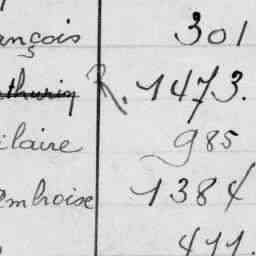 ançois 301
thurin R. 1473.
ilaire 985
embroise 1384
411.